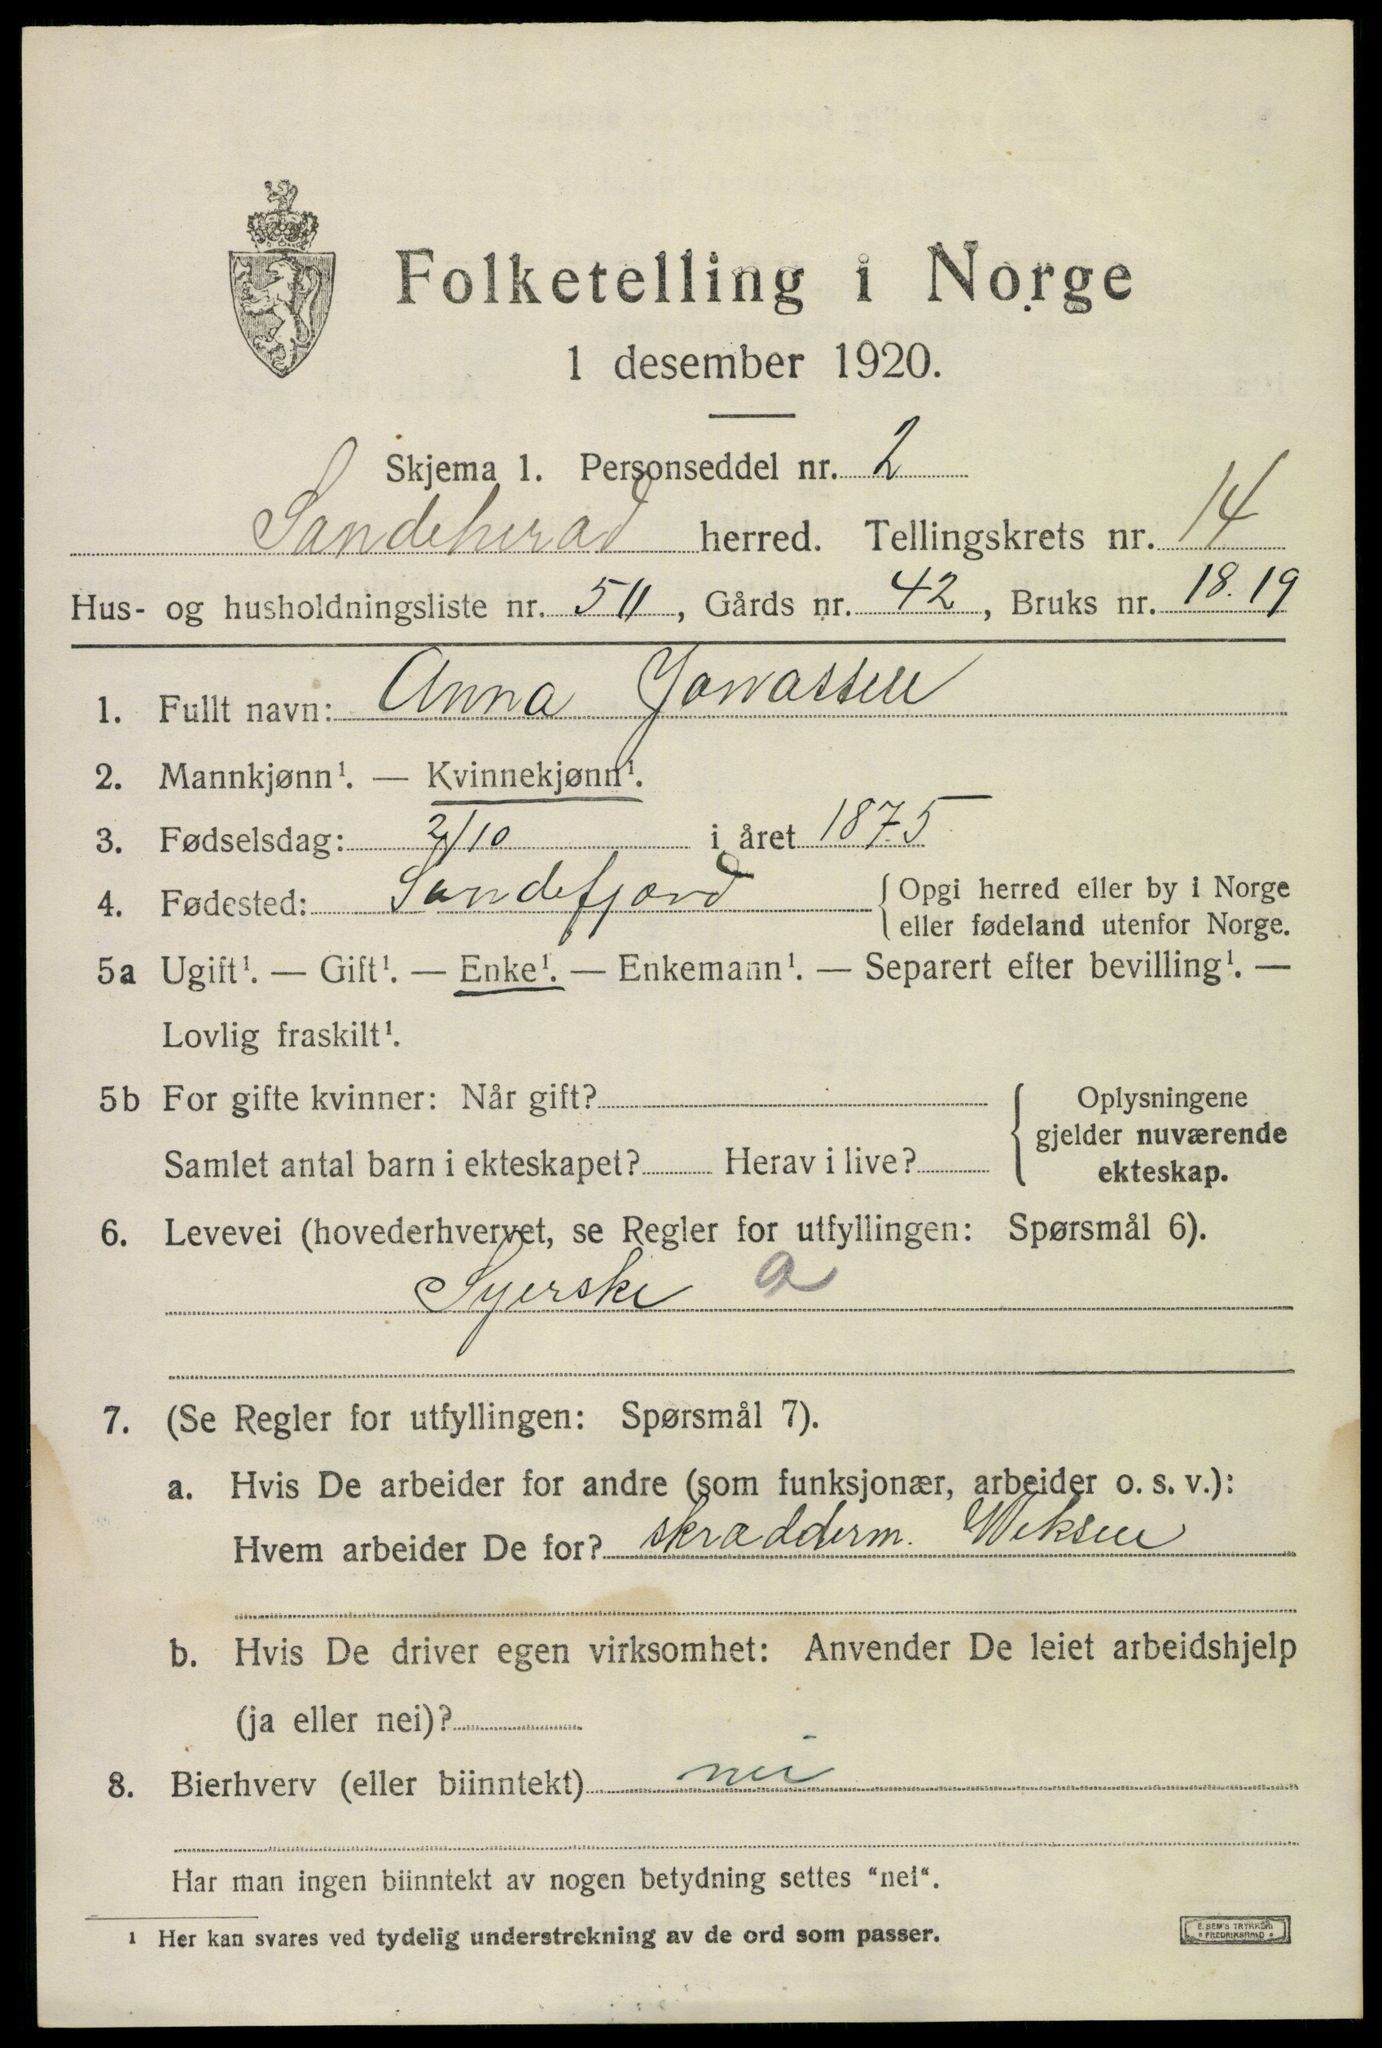 Folketelling i Norge
1 desember 1920.
Skjema 1. Personseddel nr. 2
Sandeherad herred. Tellingskrets nr. 14
Hus- og husholdningsliste nr. 511, Gårds nr. 42, Bruks nr. 18.19
1. Fullt navn: Anna Jonassen
2. Mannkjønn¹. — Kvinnekjønn¹.
3. Fødselsdag: 2/10 i året 1875
4. Fødested: Sandefjord { Opgi herred eller by i Norge
eller fødeland utenfor Norge.
5a Ugift¹. — Gift¹. — Enke¹. — Enkemann¹. — Separert efter bevilling¹. —
Lovlig fraskilt¹.
5b For gifte kvinner: Når gift? Oplysningene
gjelder nuværende
Samlet antal barn i ekteskapet? Herav i live? ekteskap.
6. Levevei (hovederhvervet, se Regler for utfyllingen: Spørsmål 6).
Syerske a
7. (Se Regler for utfyllingen: Spørsmål 7).
a. Hvis De arbeider for andre (som funksjonær, arbeider o. s. v.):
Hvem arbeider De for? skrædderm.
b. Hvis De driver egen virksomhet: Anvender De leiet arbeidshjelp
(ja eller nei)?
8. Bierhverv (eller biinntekt) nei
Har man ingen biinntekt av nogen betydning settes "nei".
¹ Her kan svares ved tydelig understrekning av de ord som passer.
E. SEM'S TRYKKERI
FREDRIKSHALD